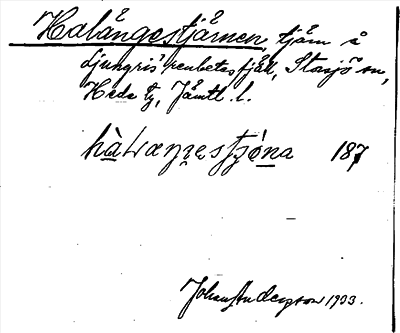 Halångestjärnen, tjärn å
Ljungris' renbetesfjäll, Storsjö sn,
Hede tg, Jämtl. l.
187
Johan Anderson 1903.